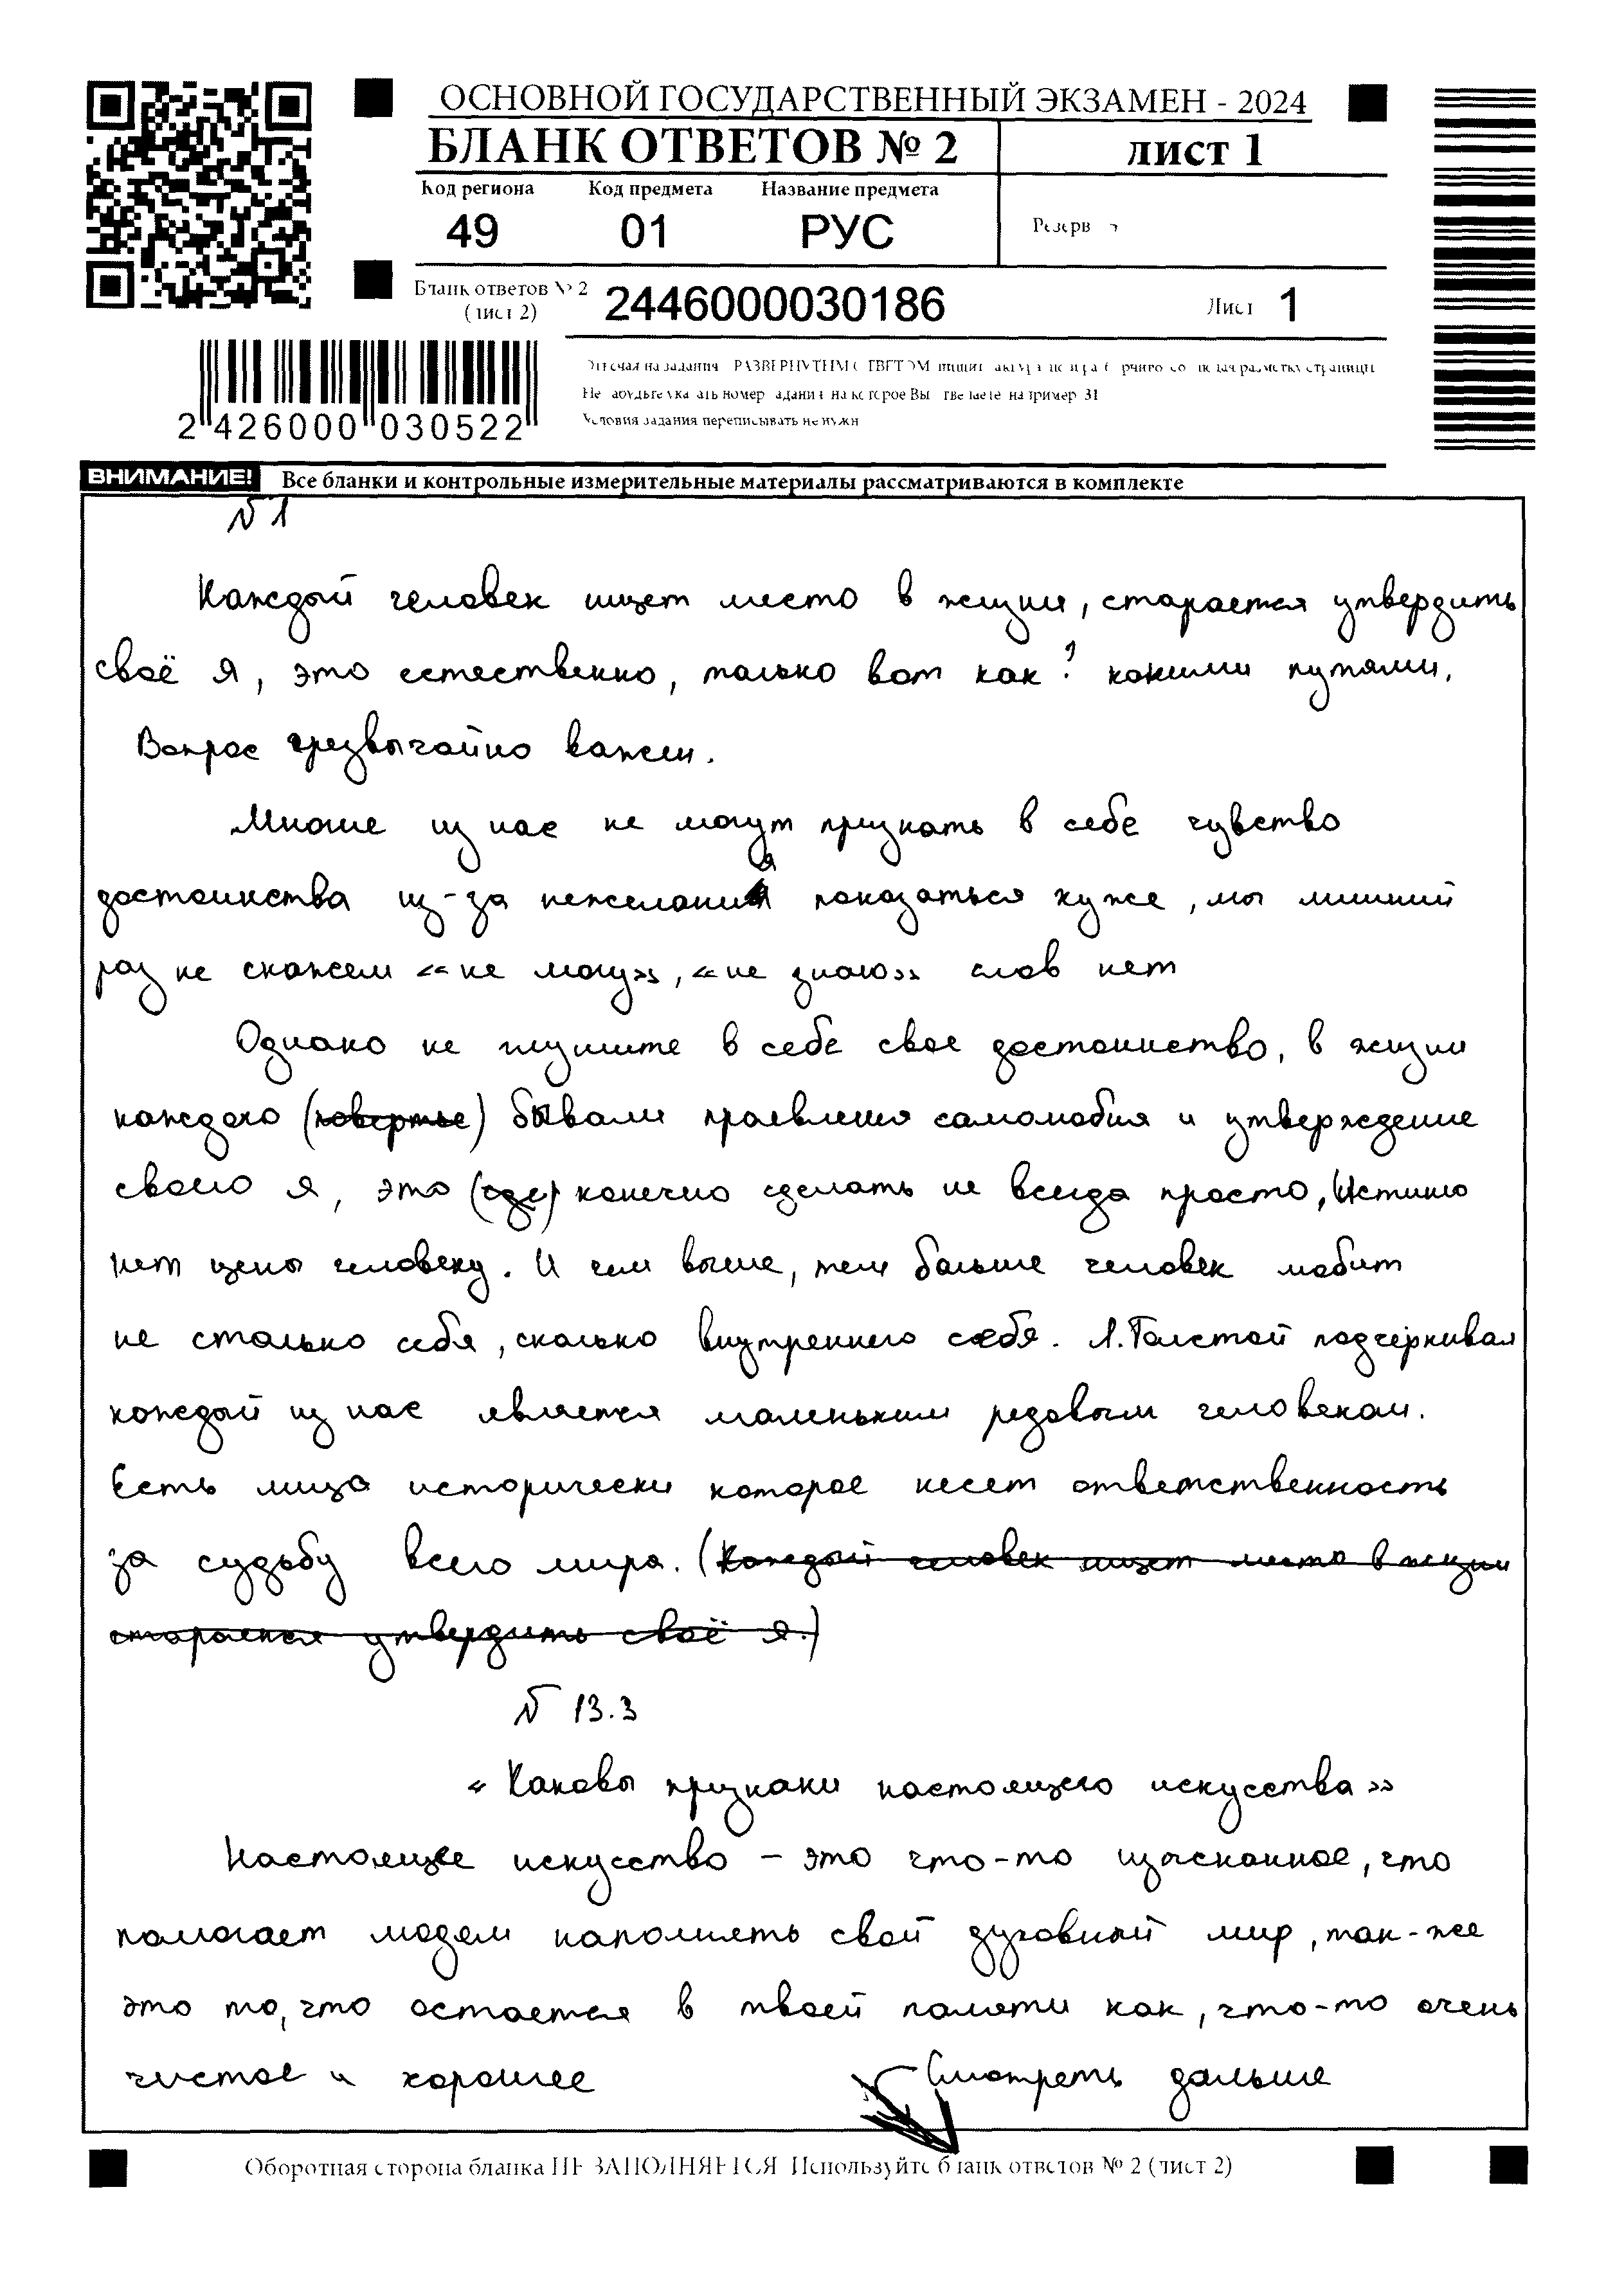 ОСНОВНОЙ ГОСУДАРСТВЕННЫЙ ЭКЗАМЕН - 2024
БЛАНК ОТВЕТОВ № 2
ЛИСТ 1
Код региона Код предмета Название предмета
49 01 РУС
Резерв
Бланк ответов № 2 (лист 2) 2446000030186 Лист 1
2 426000 030522
Условия задания переписывать не нужн
ВНИМАНИЕ! Все бланки и контрольные измерительные материалы рассматриваются в комплекте
№ 1
Каждый человек ищет место в жизни, старается утвердить
своё я, это естественно, только вот как? какими путями.
Вопрос чрезвычайно важен.
Многие из нас не могут признать в себе чувство
достоинства из-за нежелания показаться хуже, мы лишний
раз не скажем «не могу», «не знаю» слов нет
Однако не глушите в себе свое достоинство, в жизни
каждого (поверте) бывали проявления самолюбия и утверждение
своего я, это (сде) конечно сделать не всегда просто, Истинно
нет цены человеку. И чем выше, тем больше человек любит
не столько себя, сколько внутреннего себя. Л.Толстой подчёркивал
каждый из нас является маленьким рядовым человеком.
Есть лица исторически которое несет ответственность
за судьбу всего мира. (Каждый человек ищет место в жизни
старается утвердить своё я.)
№ 13.3
«Каковы признаки настоящего искусства»
Настоящее искусство – это что-то изысканное, что
помогает людям наполнять свой духовный мир, так-же
это то, что остается в твоей памяти как, что-то очень
чистое и хорошее Смотреть дальше
Оборотная сторона бланка НЕ ЗАПОЛНЯЕТСЯ Используйте бланк ответов № 2 (лист 2)